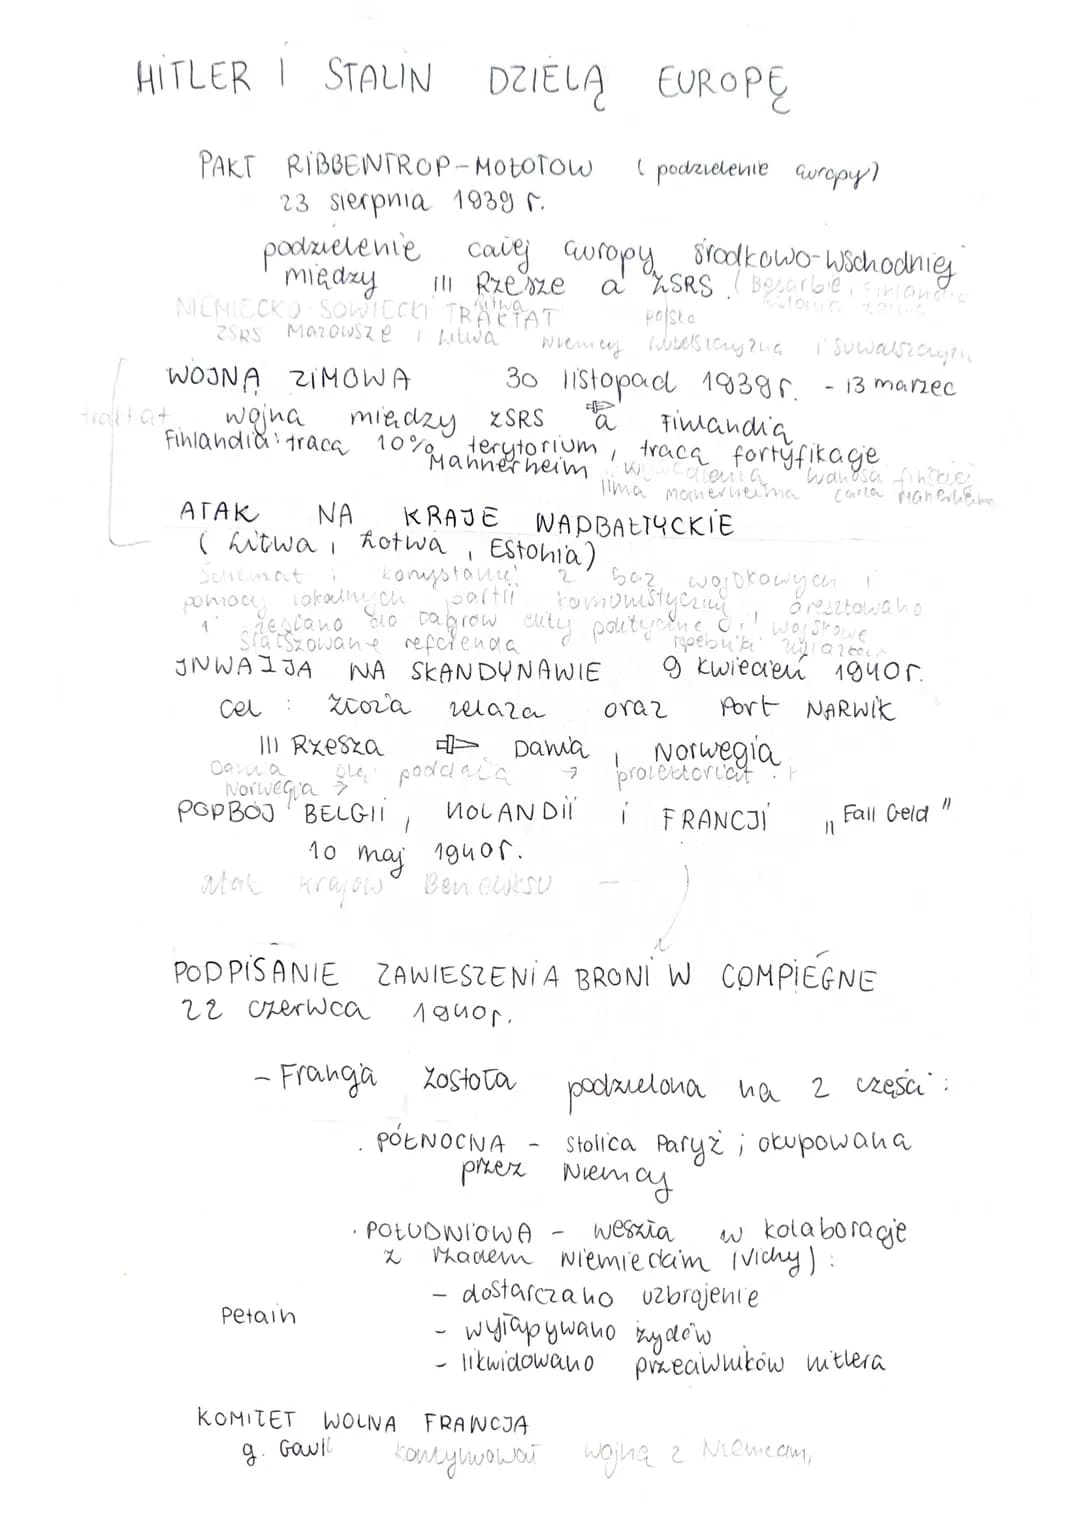 HITLER I STALIN DZIELĄ EUROPĘ
PAKT RIBBENTROP-MOŁOTOW (podzielenie europy)
23 sierpnia 1939 r.
podzielenie całej europy środkowo-wschodniej
między III Rzesze a ZSRS (Besarbie, Finlandie
Litwa Estonia
NIEMIECKO-SOWIECKI TRAKTAT Polska
ZSRS Mazowsze i Litwa Niemcy Lubelszczyzna i Suwalszczyzn
WOJNA ZIMOWA 30 listopad 1939r. - 13 marzec
traktat wojna między ZSRS a Finlandią
Finlandia: tracą 10% terytorium, tracą fortyfikacje
Mannerheim
linia manerheima Carla Manerheim
ATAK NA KRAJE NADBAŁTYCKIE
(Litwa, Łotwa, Estonia)
Schemat: korzystanie z baz wojskowych i
pomocy lokalnych partii komunistycznej aresztowano
i zesłano do łagrów elity polityczne i wojskowe
sfałszowane referenda
INWAZJA NA SKANDYNAWIE 9 kwiecień 1940r.
cel: złoża żelaza oraz Port NARWIK
III Rzesza Dania, Norwegia
Dania się poddała → protektoriat
Norwegia →
PODBÓJ BELGII, HOLANDII i FRANCJI „Fall Geld"
10 maj 1940r.
atak krajów Beneluksu —
PODPISANIE ZAWIESZENIA BRONI W COMPIÈGNE
22 czerwca 1940r.
- Francja została podzielona na 2 części:
. PÓŁNOCNA - stolica Paryż; okupowana
przez Niemcy
. POŁUDNIOWA - weszła w kolaboracje
z rządem niemieckim (Vichy):
- dostarczano uzbrojenie
Petain
- wyłapywano żydów
- likwidowano przeciwników hitlera
KOMITET WOLNA FRANCJA
g. Gaull kontynuował wojnę z Niemcami